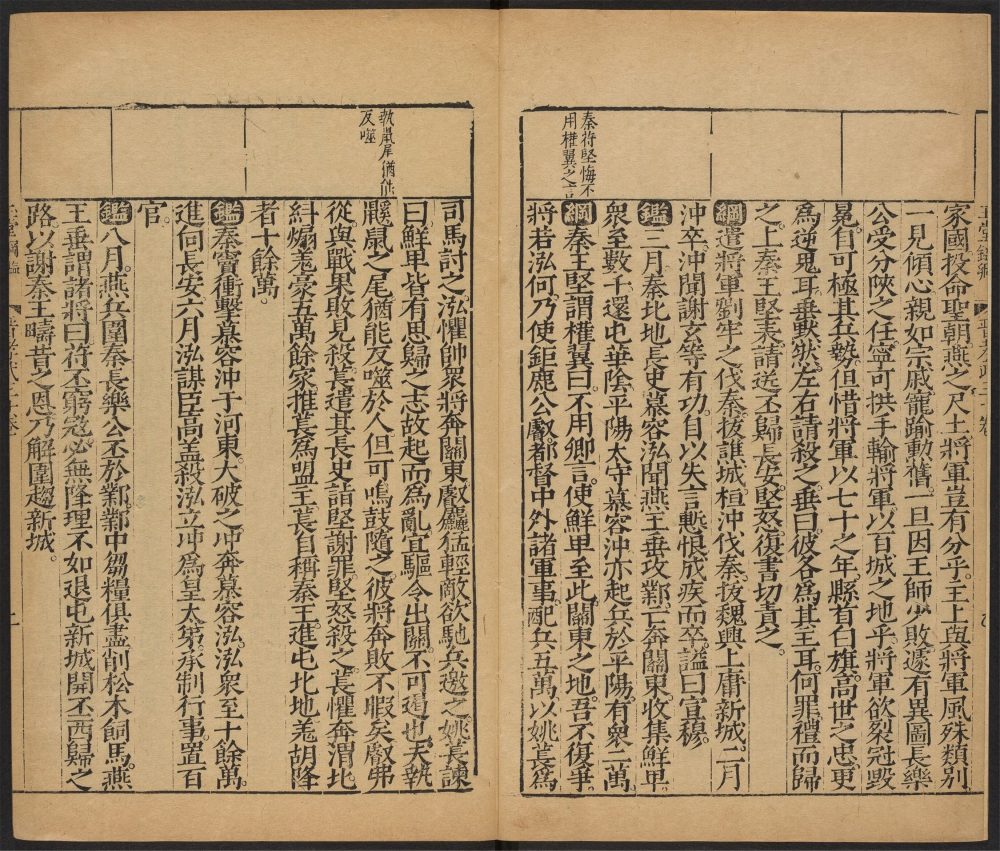 秦苻堅悔不
用權翼之言
家國投命聖朝燕之尺土將軍豈有分乎主上與將軍風殊類別
一見傾心親如宗戚寵踰勳舊一旦因王師少敗遽有異圖長樂
公受分陝之任寧可拱手輸將軍以百城之地乎將軍欲裂冠毀
冕自可極其兵勢但惜將軍以七十之年縣首白旗高世之忠更
為逆鬼耳垂默然左右請殺之垂曰彼各為其主耳何罪禮而歸
之上秦王堅表請送丕歸長安堅怒復書切責之
綱遣將軍劉牢之伐秦拔譙城桓沖伐秦拔魏興上庸新城二月
沖卒沖聞謝玄等有功自以失言慙恨成疾而卒謚曰宣穆
鑑三月秦北地長史慕容泓聞燕王垂攻鄴亡奔關東收集鮮卑
衆至數千還屯華陰平陽太守慕容沖亦起兵於平陽有衆二萬
綱秦王堅謂權翼曰不用卿言使鮮卑至此關東之地吾不復爭
將若泓何乃使鉅鹿公叡都督中外諸軍事配兵五萬以姚萇為
執鼠尾猶能
反噬
司馬討之泓懼帥衆將奔關東叡麤猛輕敵欲馳兵邀之姚萇諫
曰鮮卑皆有思歸之志故起而為亂宜驅令出關不可遏也夫執
鼷鼠之尾猶能反噬於人但可鳴鼓隨之彼將奔敗不暇矣叡弗
從與戰果敗見殺萇遣其長史詣堅謝罪堅怒殺之萇懼奔渭北
糾煽羗豪五萬餘家推萇為盟主萇自稱秦王進屯北地羗胡降
者十餘萬
鑑秦竇衝擊慕容沖于河東大破之沖奔慕容泓泓衆至十餘萬
進向長安六月泓謀臣高盖殺泓立沖為皇太第承制行事置百
官
鑑八月燕兵圍秦長樂公丕於鄴鄴中芻糧俱盡削松木飼馬燕
王垂謂諸將曰苻丕窮寇必無降理不如退屯新城開丕西歸之
路以謝秦王疇昔之恩乃解圍趨新城